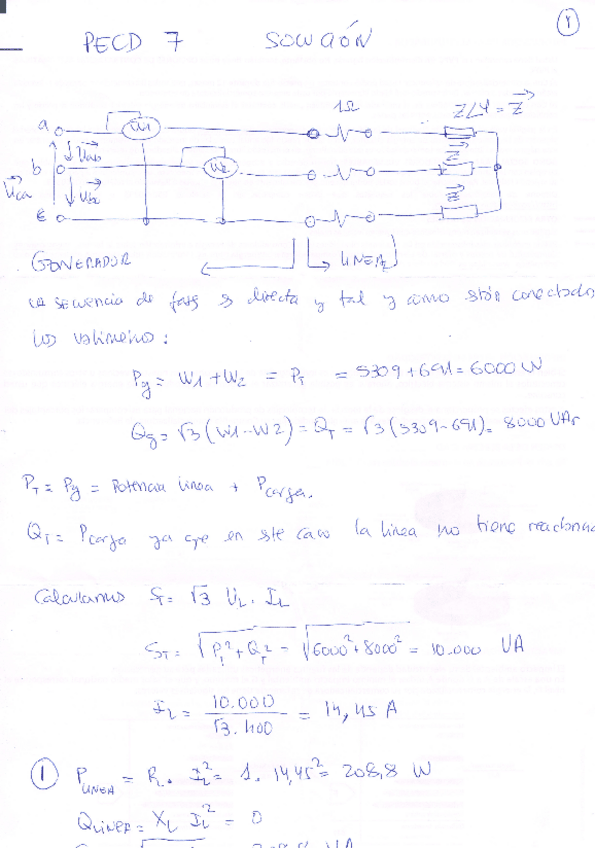 1
PECD 7 SOLUCIÓN
1Ω
Z∠φ = Z
a W1
Uab Z
b W2
Uca Ubc Z
c
GENERADOR LINEA
La secuencia de fases es directa y tal y como están conectados
los vatímetros :
Pg = W1 + W2 = PT = 5309 + 691 = 6000 W
Qg = √3 (W1 - W2) = QT = √3 (5309 - 691) = 8000 VAr
PT = Pg = Potencia línea + Pcarga.
QT = Pcarga ya que en este caso la línea no tiene reactancia
Calculamos ST = √3 UL . IL
ST = √PT²+QT² = √6000²+8000² = 10.000 VA
IL = 10.000 / √3 . 400 = 14,45 A
1 PLINEA = RL . IL² = 1 . 14,45² = 208,8 W
QLINEA = XL IL² = 0